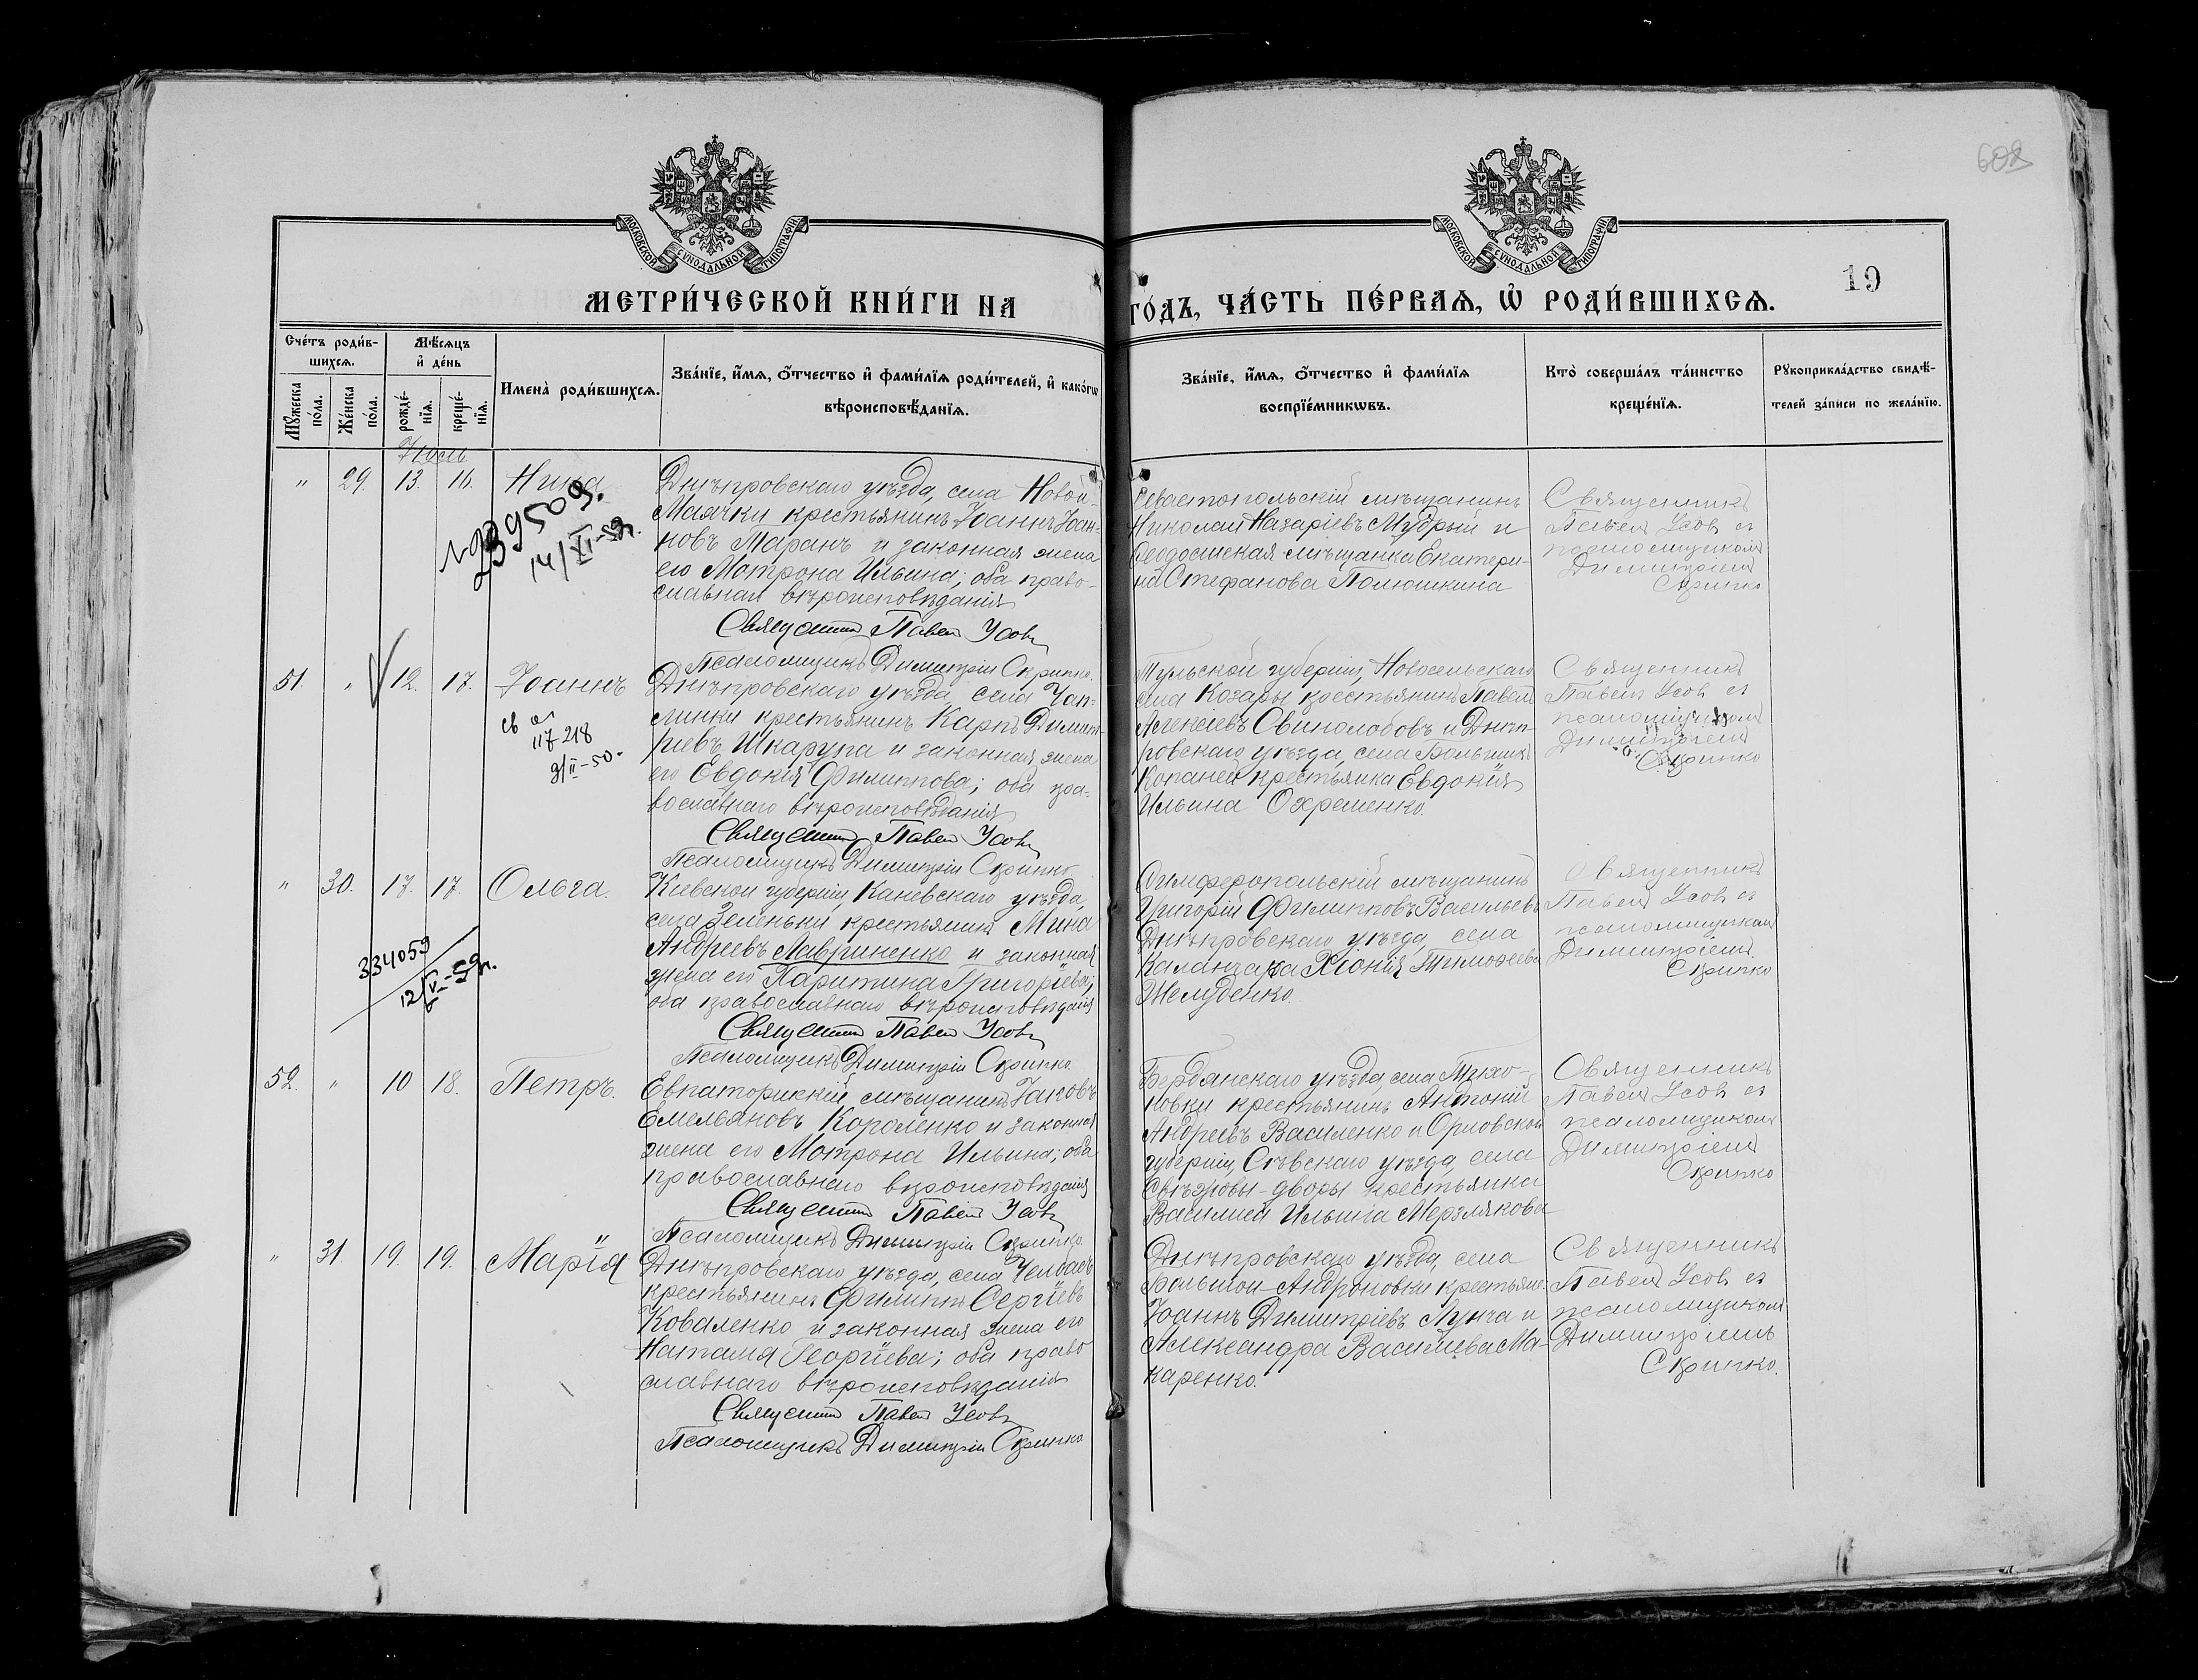 608
МОСКОВСКОЙ СѴНОДАЛЬНОЙ ТИПОГРАФІИ
МОСКОВСКОЙ СѴНОДАЛЬНОЙ ТИПОГРАФІИ
МЕТРИ́ЧЕСКОЙ КНИ́ГИ НА
ГО́ДЪ, ЧА́СТЬ ПЕ́РВАѦ, Ѡ҆ РОДИ́ВШИХСѦ.
19
Сче́тъ роди́в-
шихсѧ.
Мѹ́жеска
по́ла.
Же́нска
по́ла.
Мѣ́сѧцъ
и҆ де́нь
рожде́-
нїѧ.
креще́-
нїѧ.
Имена̀ роди́вшихсѧ.
Зва́нїе, и҆́мѧ, ѻ҆́тчество и҆ фами́лїѧ роди́телей, и҆ како́гѡ
вѣроисповѣ́данїѧ.
Зва́нїе, и҆́мѧ, ѻ҆́тчество и҆ фами́лїѧ
воспрїе́мникѡвъ.
Кто̀ соверша́лъ та́инство
креще́нїѧ.
Рѹкоприкла́дство свидѣ́-
телей за́писи по жела́нїю.
" 29. 13. 16. Нина
14/XI-59г.
Днѣпровскаго уѣзда, села Новой-
Маячки крестьянинъ Іоаннъ Іоан-
новъ Маранъ и законная жена
его Мотрона Ильина; оба право-
славнаго вѣроисповѣданія
Священникъ Павелъ Усовъ
Псаломщикъ Димитрій Скрипко.
Севастопольскій мѣщанинъ
Николай Назаріевъ Мудрый и
Ѳеодосійская мѣщанка Екатери-
на Стефанова Полюшкина
Священникъ
Павелъ Усовъ съ
псаломщикомъ
Димитріемъ
Скрипко
51. " 12. 17. Іоаннъ
св
117218
9/II-50.
Днѣпровскаго уѣзда, села Чап-
линки крестьянинъ Карпъ Димит-
ріевъ Шкарупа и законная жена
его Евдокія Филиппова; оба пра-
вославнаго вѣроисповѣданія
Священникъ Павелъ Усовъ
Псаломщикъ Димитрій Скрипко
Тульской губерніи, Новосельскаго
села Козары крестьянинъ Павелъ
Алексіевъ Свинолобовъ и Днѣп-
ровскаго уѣзда, села Большихъ
Копаней крестьянка Евдокія
Ильина Охременко.
Священникъ
Павелъ Усовъ съ
псаломщикомъ
Димитріемъ
Скрипко
" 30. 17. 17. Ольга.
334059
12/V-59г.
Кіевской губерніи, Каневскаго уѣзда,
села Зеленьки крестьянинъ Мина
Андреевъ Лавриненко и законная
жена его Параскева Григоріева;
оба православнаго вѣроисповѣданія
Священникъ Павелъ Усовъ
Псаломщикъ Димитрій Скрипко.
Симферопольскій мѣщанинъ
Григорій Филипповъ Васильевъ
Днѣпровскаго уѣзда, села
Каланчака Хіонія Тимоѳеева
Желуденко.
Священникъ
Павелъ Усовъ съ
псаломщикомъ
Димитріемъ
Скрипко
52. " 10 18. Петръ.
Евпаторійскій мѣщанинъ Іаковъ
Емельяновъ Короленко и законная
жена его Мотрона Ильина; оба
православнаго вѣроисповѣданія
Священникъ Павелъ Усовъ
Псаломщикъ Димитрій Скрипко
Бердянскаго уѣзда, села Тихо-
новки крестьянинъ Антоній
Андреевъ Василенко и Орловской
губерніи, Сѣвскаго уѣзда, села
дворы крестьянка
Ильина Мерзлякова
Священникъ
Павелъ Усовъ съ
псаломщикомъ
Димитріемъ
Скрипко
" 31. 19. 19. Марія
Днѣпровскаго уѣзда, села Челбасъ
крестьянинъ Филиппъ Сергіевъ
Коваленко и законная жена его
Наталія Георгіева; оба право
славнаго вѣроисповѣданія
Священникъ Павелъ Усовъ
Псаломщикъ Димитрій Скрипко
Днѣпровскаго уѣзда, села
Большой-Андроновки крестьяне:
Іоаннъ Димитріевъ Лунга и
Александра Васильева Ма-
каренко.
Священникъ
Павелъ Усовъ съ
псаломщикомъ
Димитріемъ
Скрипко.